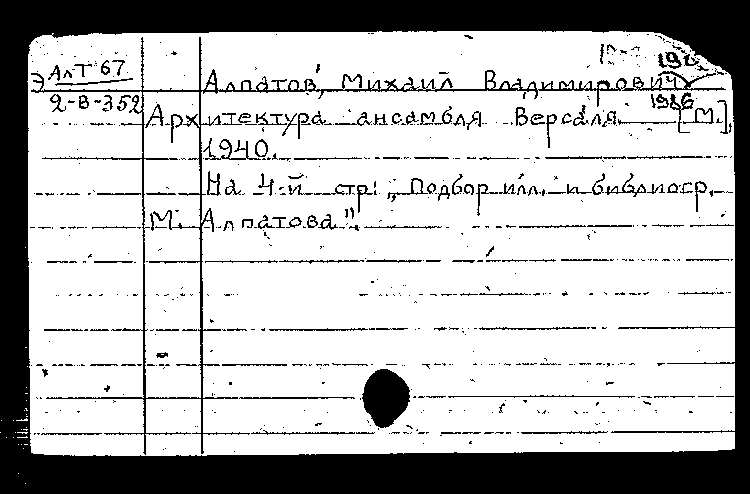 Э АлТ 67
2-В-352
Алпатов, Михаил Владимирович
1986
Архитектура ансамбля Версаля. [М.],
1940.
На 4-й стр: „Подбор илл. и библиогр.
М. Алпатова".